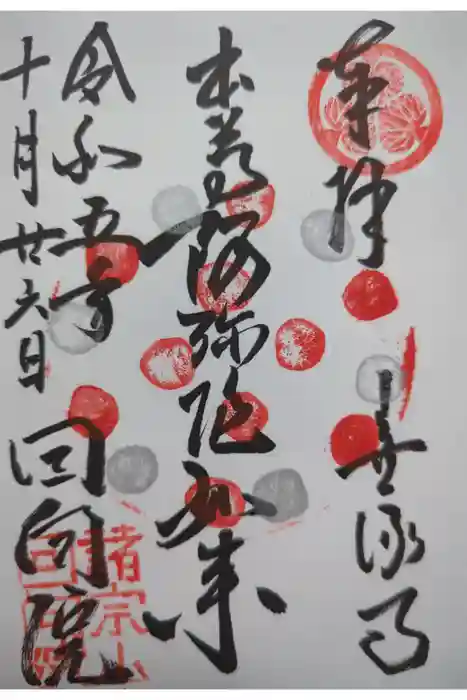 奉拝 無縁寺
本尊阿弥陀如来
令和五年
十月廿六日
回向院
諸宗山
回向院